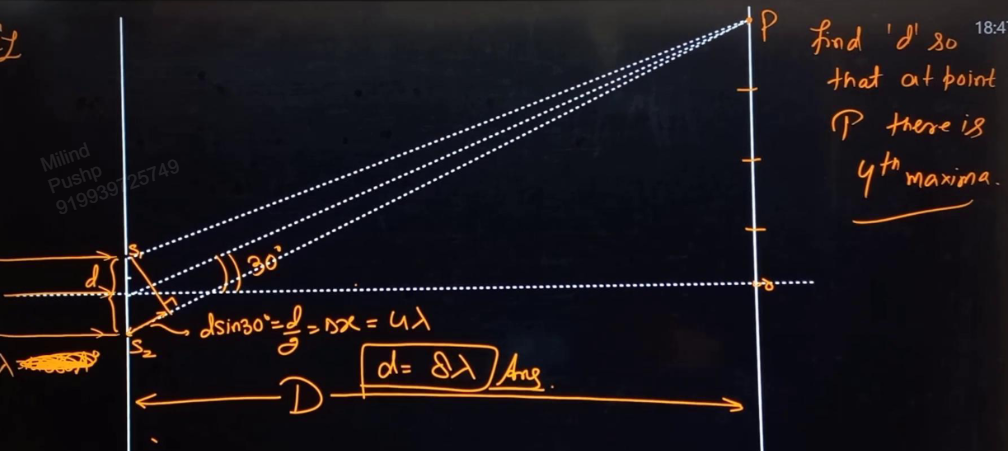 P
find 'd' so
that at point
P there is
4th maxima.
18:4
Milind
Pushp
919939725749
S1
d
30°
0
dsin30° = d/2 = Δx = 4λ
S2
λ
d = 8λ Ans.
D